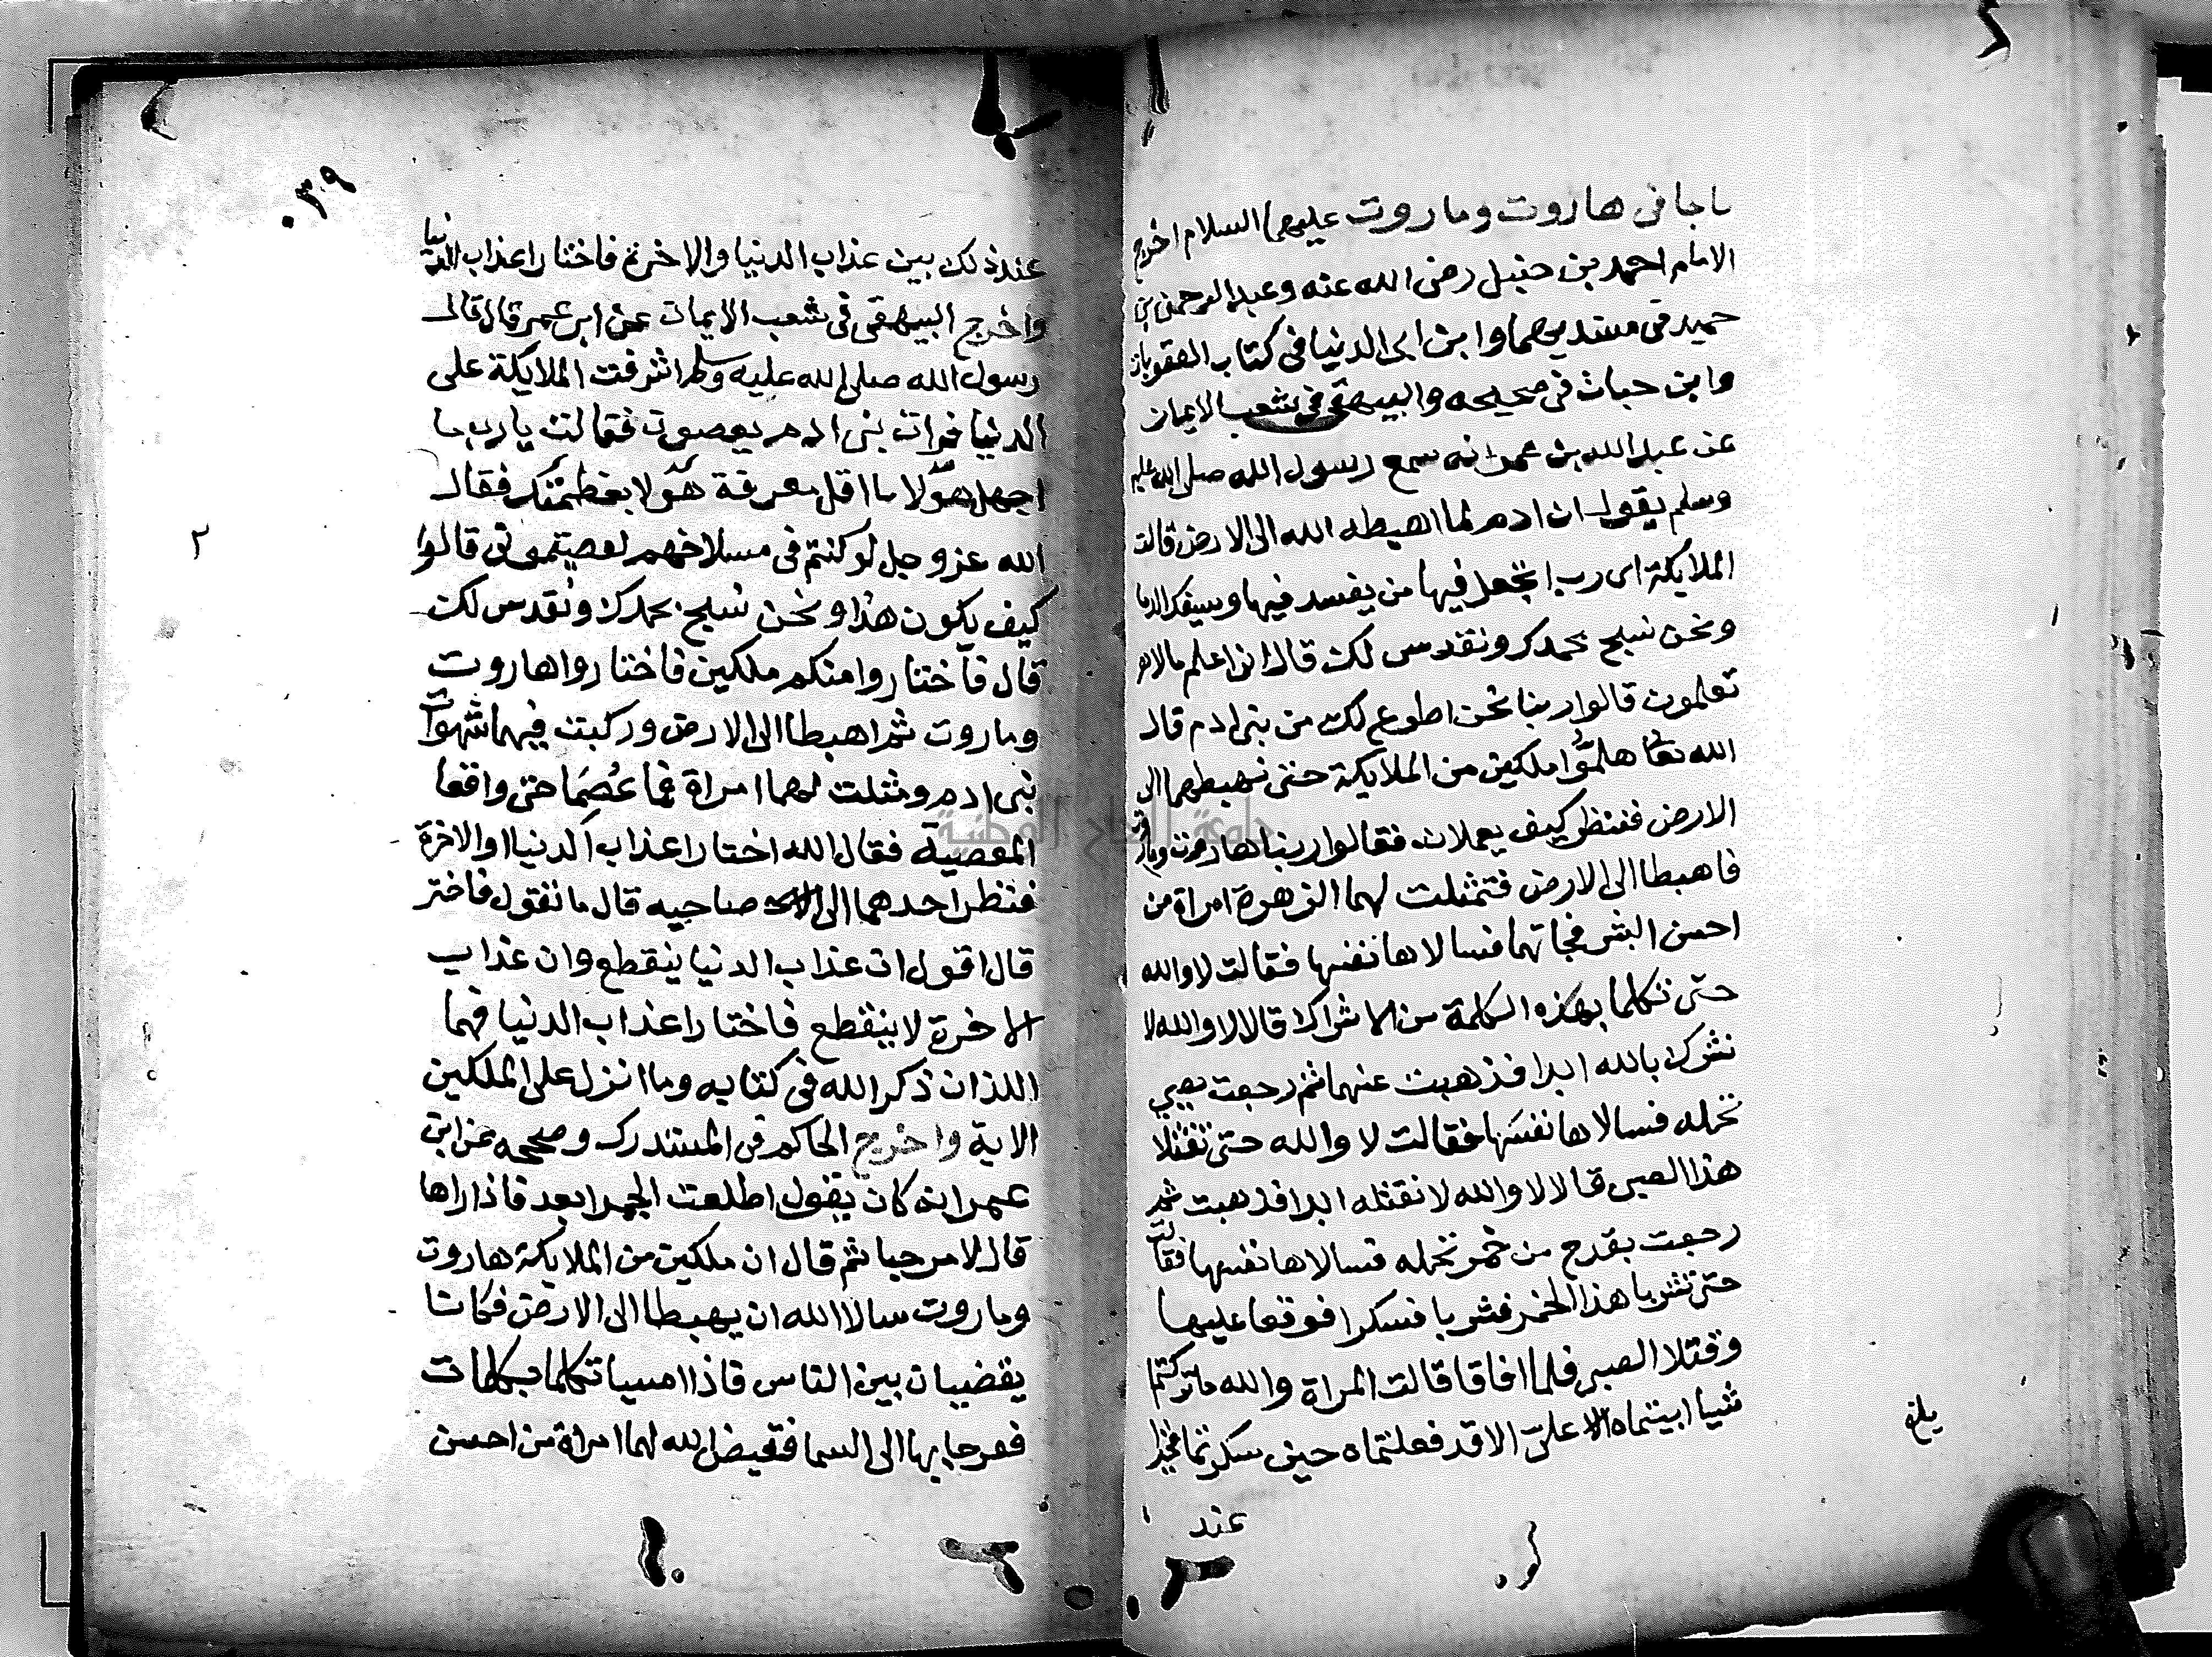 ما جا في هاروت وماروت عليهما السلام اخرج
الامام احمد بن حنبل رضى الله عنه وعبد الرحمن بن
حميد في مسنديهما وابن ابى الدنيا في كتاب العقوبات
وابن حبان في صحيحه والبيهقى في شعب الايمان
عن عبد الله بن عمر انه سمع رسول الله صلى الله عليه
وسلم يقول ان ادم لما اهبطه الله الى الارض قالت
الملايكة اى رب اتجعل فيها من يفسد فيها ويسفك الدما
ونحن نسبح بحمدك ونقدس لك قال انى اعلم مالا
تعلمون قالوا ربنا نحن اطوع لك من بنى ادم قال
الله تعا هلموا ملكين من الملايكة حتى نهبطهما الى
الارض فننظر كيف يعملان فقالوا ربنا هاروت وماروت
فاهبطا الى الارض فتمثلت لهما الزهرة امراة من
احسن البشر فجاتهما فسالاها نفسها فقالت لا والله
حتى تكلما بهذه الكلمة من الاشراك قالا لا والله لا
نشرك بالله ابدا فذهبت عنهما ثم رجعت بصبي
تحمله فسالاها نفسها فقالت لا والله حتى تقتلا
هذا الصبى قالا لا والله لا نقتله ابدا فذهبت ثم
رجعت بقدح من خمر تحمله فسالاها نفسها فقالت
حتى تشربا هذا الخمر فشربا فسكرا فوقعا عليها
وقتلا الصبى فلما افاقا قالت المراة والله ما تركتما
شيا ابيتماه على الا قد فعلتماه حين سكرتما فخيرا
عند
يلزة
٠٣٩
عند ذلك بين عذاب الدنيا والاخرة فاختارا عذاب الدنيا
واخرج البيهقى في شعب الايمان عن ابن عمر قال قال
رسول الله صلى الله عليه وسلم اشرفت الملايكة على
الدنيا فرات بنى ادم يعصون فقالت يارب ما
اجهل هولا ما اقل معرفة هولا بعظمتك فقال
الله عز وجل لو كنتم في مسلاخهم لعصيتمونى قالوا
كيف يكون هذا ونحن نسبح بحمدك ونقدس لك
قال فاختاروا منكم ملكين فاختاروا هاروت
وماروت ثم اهبطا الى الارض وركبت فيهما شهوات
بنى ادم ومثلت لهما امراة فما عُصِمَا حتى واقعا
المعصية فقال الله اختارا عذاب الدنيا او الاخرة
فنظر احدهما الى صاحبه قال ما تقول فاختر
قال اقول ان عذاب الدنيا ينقطع وان عذاب
الاخرة لا ينقطع فاختارا عذاب الدنيا فهما
اللذان ذكر الله في كتابه وما انزل على الملكين
الاية واخرج الحاكم في المستدرك وصححه عن ابن
عمر انه كان يقول اطلعت الحمرا بعد فاذا راها
قال لا مرحبا ثم قال ان ملكين من الملايكة هاروت
وماروت سالا الله ان يهبطا الى الارض فكانا
يقضيان بين الناس فاذا امسيا تكلما بكلمات
فعرجا بها الى السما فقيض الله لهما امراة من احسن
٢
جامعة النجاح الوطنية